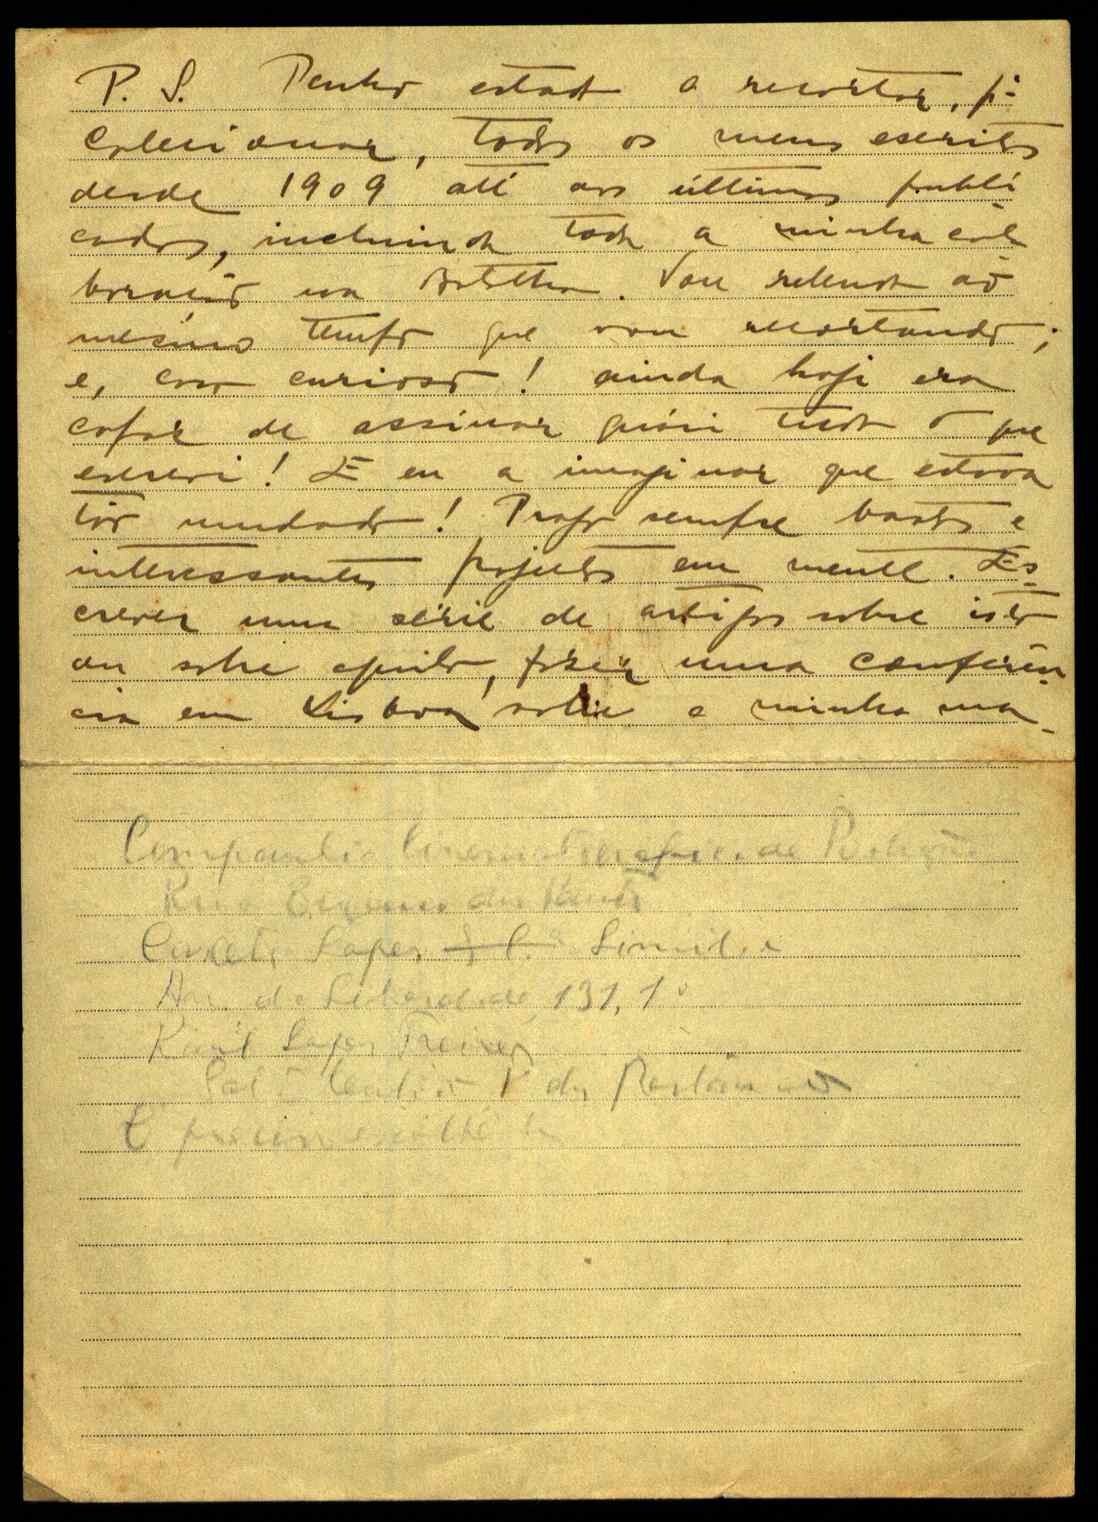 P. S. Tenho estado a recortar, pª
colecionar, todos os meus escritos
desde 1909 até aos últimos publi
cados, incluindo toda a minha cola
boração na Batalha. Vou relendo ao
mesmo tempo que vou recortando;
e, caso curioso! ainda hoje era
capaz de assinar quási tudo o que
escrevi! E eu a imaginar que estava
tão mudado! Trago sempre vastos e
interessantes projectos em mente. Es-
crever uma série de artigos sobre isto
ou sobre aquilo, fazer uma conferên-
cia em Lisboa sobre a minha ma-
Companhia Cinematografica de Portugal
Rua Eugenio dos Santos
Lopes Limitada
Av. da Liberdade, 131, 1º
Raúl Lopes Freire
Salão Central P. dos Restauradores
É preciso